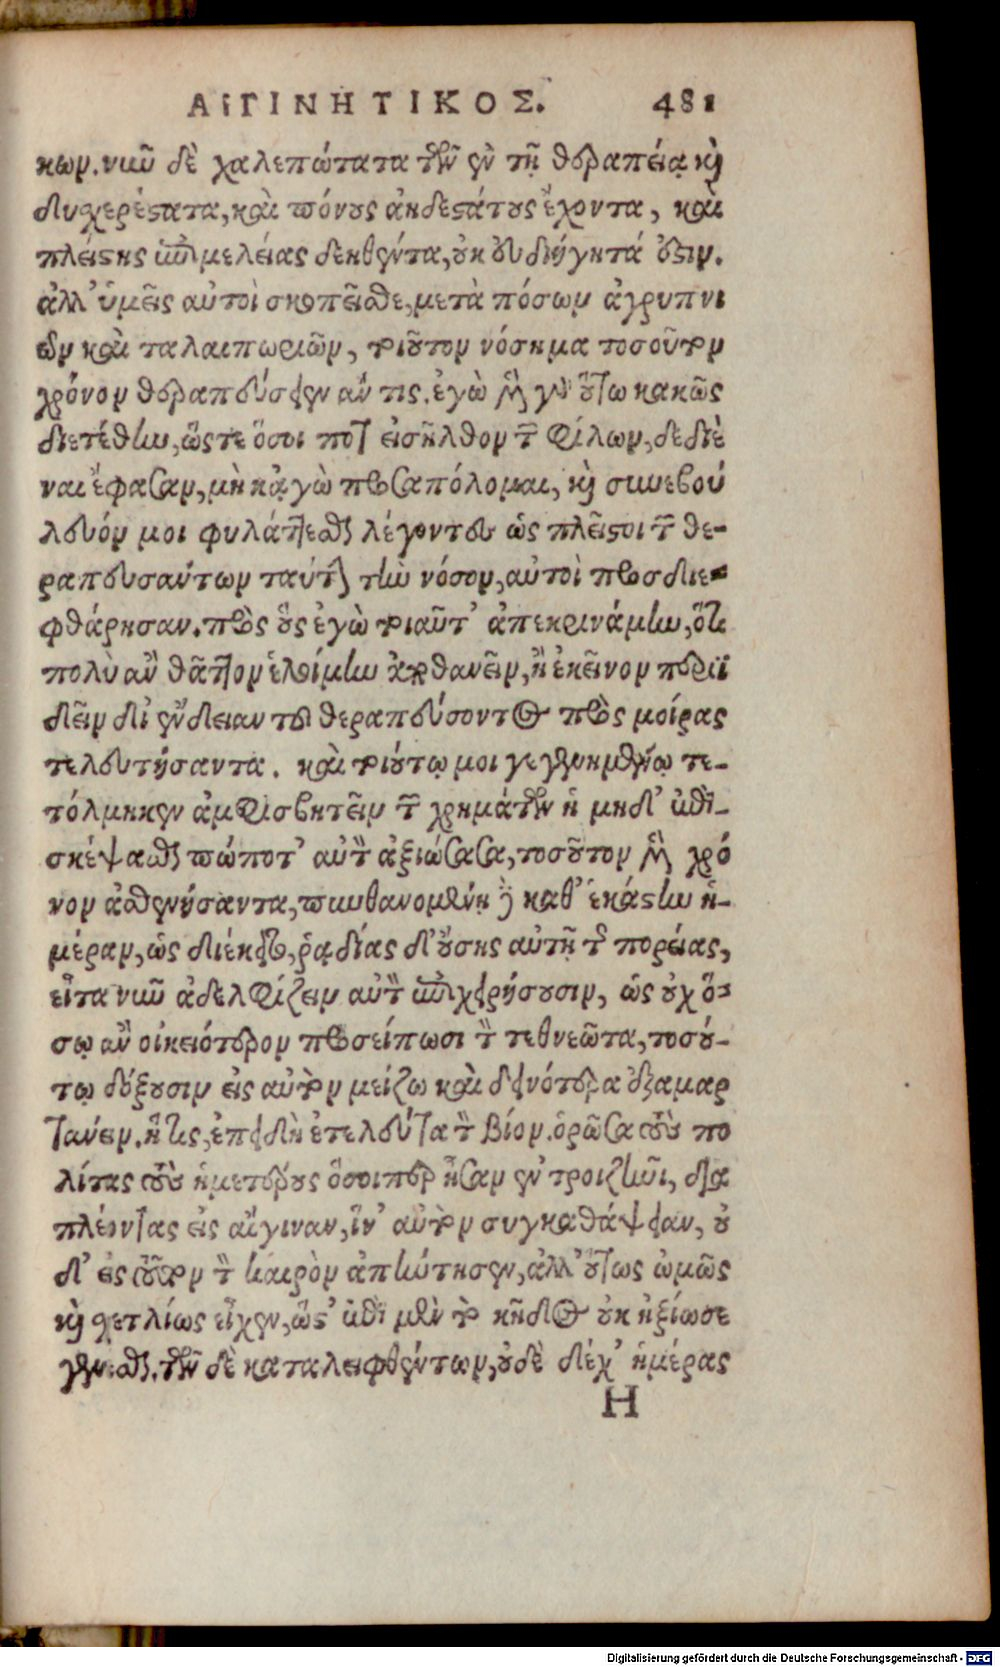 ΑΙΓΙΝΗΤΙΚΟΣ. 481
κων. νῦν δὲ χαλεπώτατα τῶν ἐν τῇ θεραπείᾳ καὶ
δυχερέστατα, καὶ πόνους ἀηδεστάτους ἔχοντα, καὶ
πλείστης ἐπιμελείας δεηθέντα, οὐκ εὐδιήγητά ἐστιν.
ἀλλ' ὑμεῖς αὐτοὶ σκοπεῖσθε, μετὰ πόσων ἀγρυπνι
ῶν καὶ ταλαιπωριῶν, τοιοῦτον νόσημα τοσοῦτον
χρόνον θεραπεύσειεν ἄν τις. ἐγὼ μὲν γὰρ οὕτω κακῶς
διετέθην, ὥστε ὅσοι ποτ εἰσῆλθον τῶν φίλων, δεδιέ
ναι ἔφασαν, μὴ κἀγὼ προσαπόλομαι, καὶ συνεβού
λευόν μοι φυλάττεσθαι λέγοντες ὡς πλεῖστοι τῶν θε-
ραπευσάντων ταύτην τὴν νόσον, αὐτοὶ προσδιε-
φθάρησαν. πρὸς οὓς ἐγὼ τοιαῦτ' ἀπεκρινάμην, ὅτι
πολὺ ἂν θᾶττον ἑλοίμην ἀποθανεῖν, ἢ ἐκεῖνον περιϊ
δεῖν δι' ἔνδειαν τοῦ θεραπεύσοντος πρὸς μοίρας
τελευτήσαντα. καὶ τοιούτῳ μοι γεγενημένῳ τε-
τόλμηκεν ἀμφισβητεῖν τῶν χρημάτων ἡ μηδ' ἐπι-
σκέψασθαι πώποτ' αὐτὸν ἀξιώσασα, τοσοῦτον μὲν χρό
νον ἀσθενήσαντα, πυνθανομένη δὲ καθ' ἑκάστην ἡ-
μέραν, ὡς διέκειτο, ῥᾳδίας δ' οὔσης αὐτῇ τῆς πορείας,
εἶτα νῦν ἀδελφίζειν αὐτὸν ἐπιχειρήσουσιν, ὡς οὐχ ὅ-
σῳ ἂν οἰκειότερον προσείπωσι τὸν τεθνεῶτα, τοσού-
τῳ δόξουσιν εἰς αὐτὸν μείζω καὶ δεινότερα ἐξαμαρ
τάνειν. ἥτις, ἐπειδὴ ἐτελεύτα τὸν βίον. ὁρῶσα τοὺς πο
λίτας τοὺς ἡμετέρους ὅσοιπερ ἦσαν ἐν τροιζῆνι, δια
πλέοντας εἰς αἴγιναν, ἵν' αὐτὸν συγκαθάψειαν, οὐ
δ' εἰς τοῦτον τὸν καιρὸν ἀπήντησεν, ἀλλ' οὕτως ὠμῶς
καὶ σχετλίως εἶχεν, ὥστ' ἐπὶ μὲν τὸ κῆδος οὐκ ἠξίωσε
γενέσθαι. τῶν δὲ καταλειφθέντων, οὐδὲ δέχ' ἡμέρας
Η
Digitalisierung gefördert durch die Deutsche Forschungsgemeinschaft - DFG